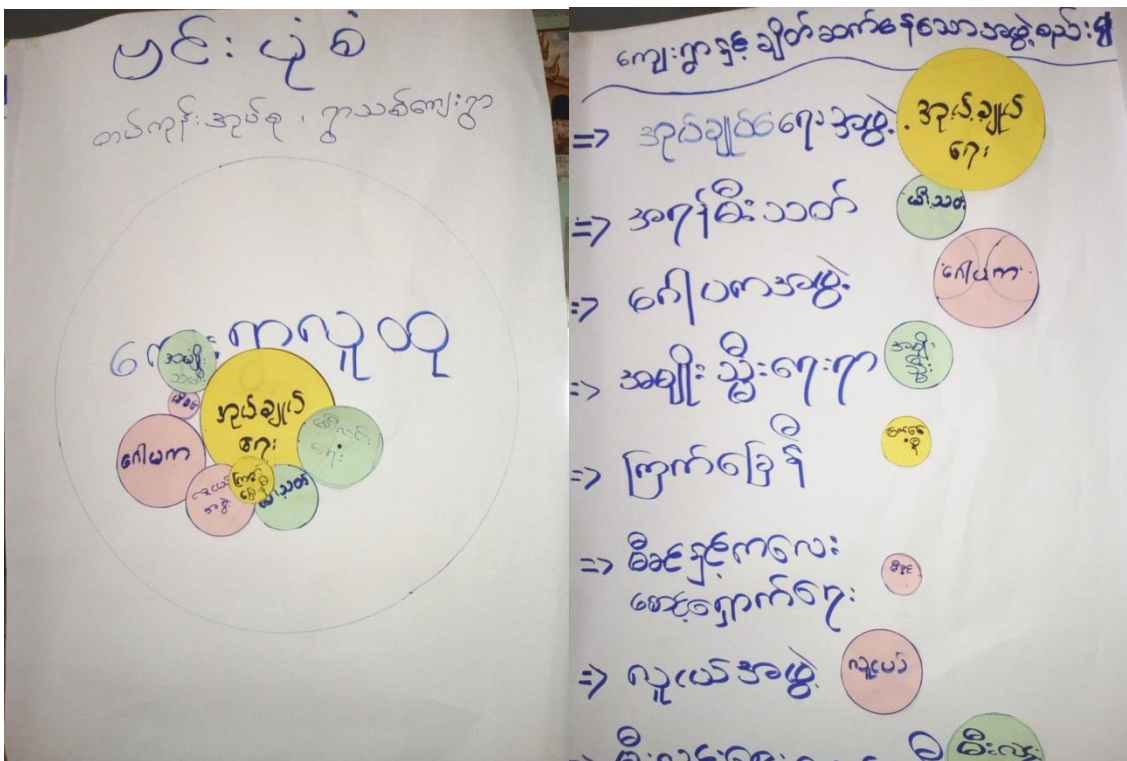 ဗင်းပုံစံ
တပ်ကုန်းအုပ်စု ၊ ရွာသစ်ကျေးရွာ
ကျေးရွာလူထု
အမျိုး
သမီး
မိခင်
အုပ်ချုပ်
ရေး
ဂေါပက
မီးလင်း
ရေး
လူငယ်
အဖွဲ့
ကြက်ခြေနီ
မီးသတ်
ကျေးရွာနှင့် ချိတ်ဆက်နေသောအဖွဲ့စည်း
=> အုပ်ချုပ်ရေးအဖွဲ့
အုပ်ချုပ်
ရေး
=> အရန်မီးသတ်
မီးသတ်
=> ဂေါပကအဖွဲ့
ဂေါပက
=> အမျိုးသ္မီးရေးရာ
အမျိုး
သ္မီး
=> ကြက်ခြေနီ
=> မိခင်နှင့်ကလေး
စောင့်ရှောက်ရေး
မိခင်
=> လူငယ်အဖွဲ့
လူငယ်
မီးလင်းရေး
မီးလင်း